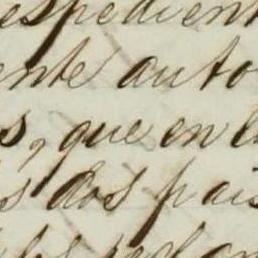 espedient
ente auto
s, que en l
s dos pais